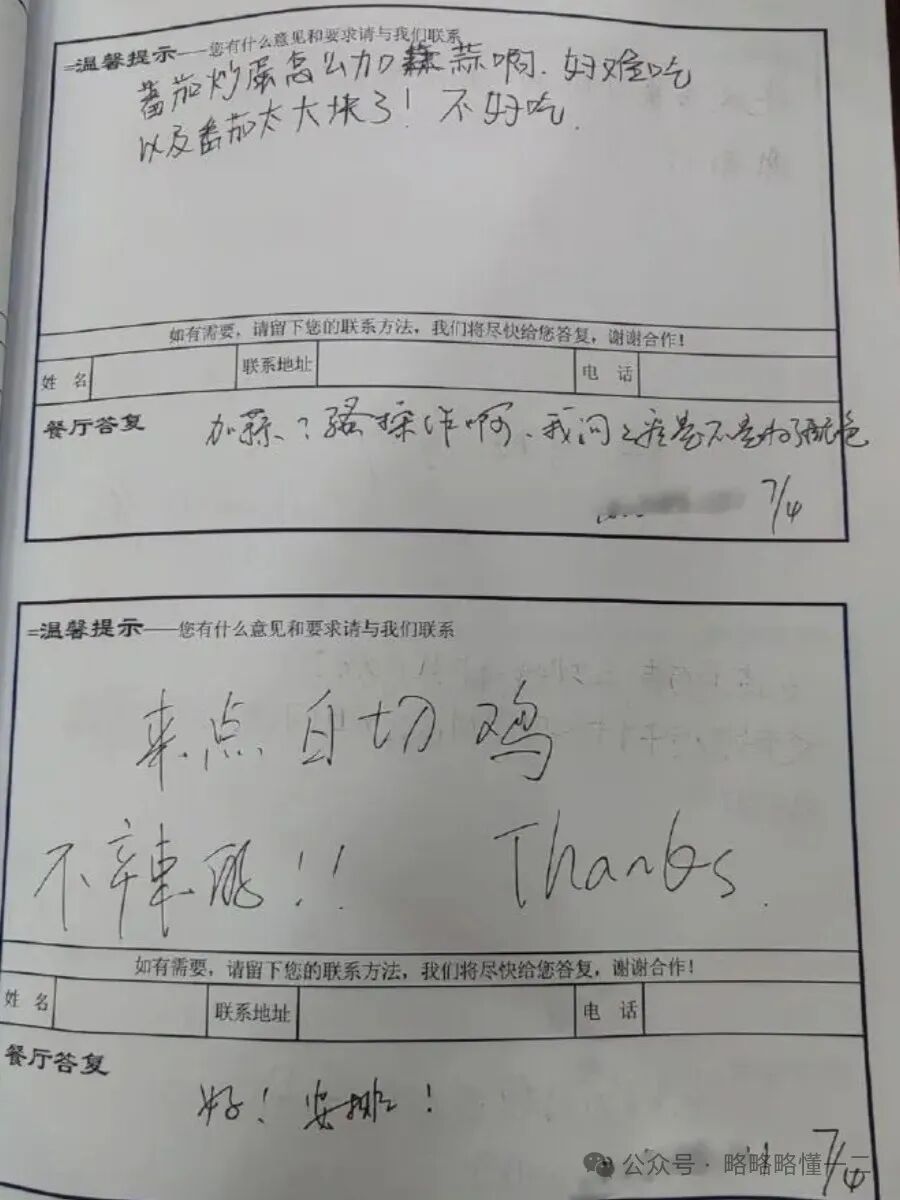 =温馨提示——您有什么意见和要求请与我们联系
番茄炒蛋怎么加蒜啊、好难吃
以及番茄太大块了！不好吃.
如有需要，请留下您的联系方法，我们将尽快给您答复，谢谢合作！
姓 名 联系地址 电 话
餐厅答复 加蒜？骚操作啊、我问之后是不是为了配色
7/4
=温馨提示——您有什么意见和要求请与我们联系
来点白切鸡
不辣的！！ Thanks.
如有需要，请留下您的联系方法，我们将尽快给您答复，谢谢合作！
姓 名 联系地址 电 话
餐厅答复
好！安排！
7/4
公众号·略略略懂一二